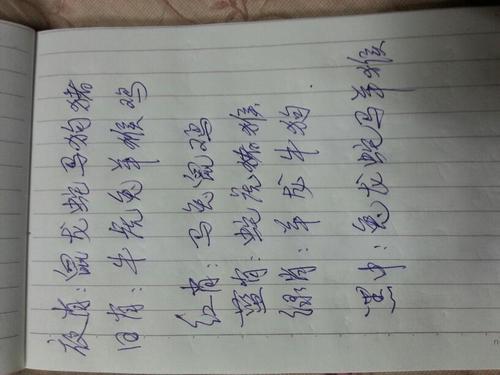 夜肖:鼠龙蛇马狗猪
日肖:牛虎兔羊猴鸡
红肖:马兔鼠鸡
蓝肖:蛇虎猪猴
绿肖:羊龙牛狗
黑中:兔龙蛇马羊猴